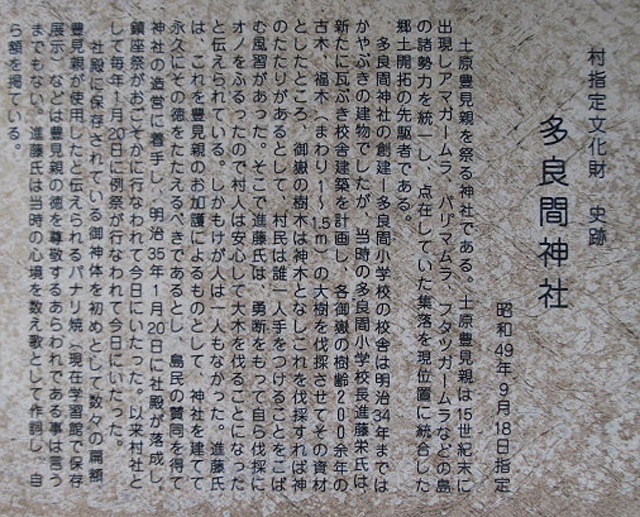 村指定文化財　史跡
多良間神社
昭和49年9月18日指定
土原豊見親を祭る神社である。土原豊見親は15世紀末に
出現しアマガームラ、パリマムラ、フタツガームラなどの島
の諸勢力を統一し、点在していた集落を現位置に統合した
郷土開拓の先駆者である。
多良間神社の創建ー多良間小学校の校舎は明治34年までは
かやぶきの建物でしたが、当時の多良間小学校長進藤栄氏は、
新たに瓦ぶき校舎建築を計画し、各御嶽の樹齢200余年の
古木、福木（まわり1〜1.5m）の大樹を伐採させてその資材
としたところ、御嶽の樹木は神木となしこれを伐採すれば神
のたたりがあるとして、村民は誰一人手をつけることをこば
む風習があった。そこで進藤氏は、勇断をもって自ら伐採に
オノをふるったので村人は安心して大木を伐ることになった
と伝えられている。しかもけが人は一人もなかった。進藤氏
は、これを豊見親のお加護によるものとして、神社を建てて
永久にその徳をたたえるべきであるとし、島民の賛同を得て
神社の造営に着手し、明治35年1月20日に社殿が落成し、
鎮座祭がおごそかに行なわれて今日にいたった。以来村社と
して毎年1月20日に例祭が行なわれて今日にいたった。
社殿に保存されている御神体を初めとして数々の扁額
豊見親が使用したと伝えられるパナリ焼（現在学習館で保存
展示）などは豊見親の徳を尊敬するあらわれである事は言う
までもない。進藤氏は当時の心境を数え歌として作詞し　自
ら額を掲ている。